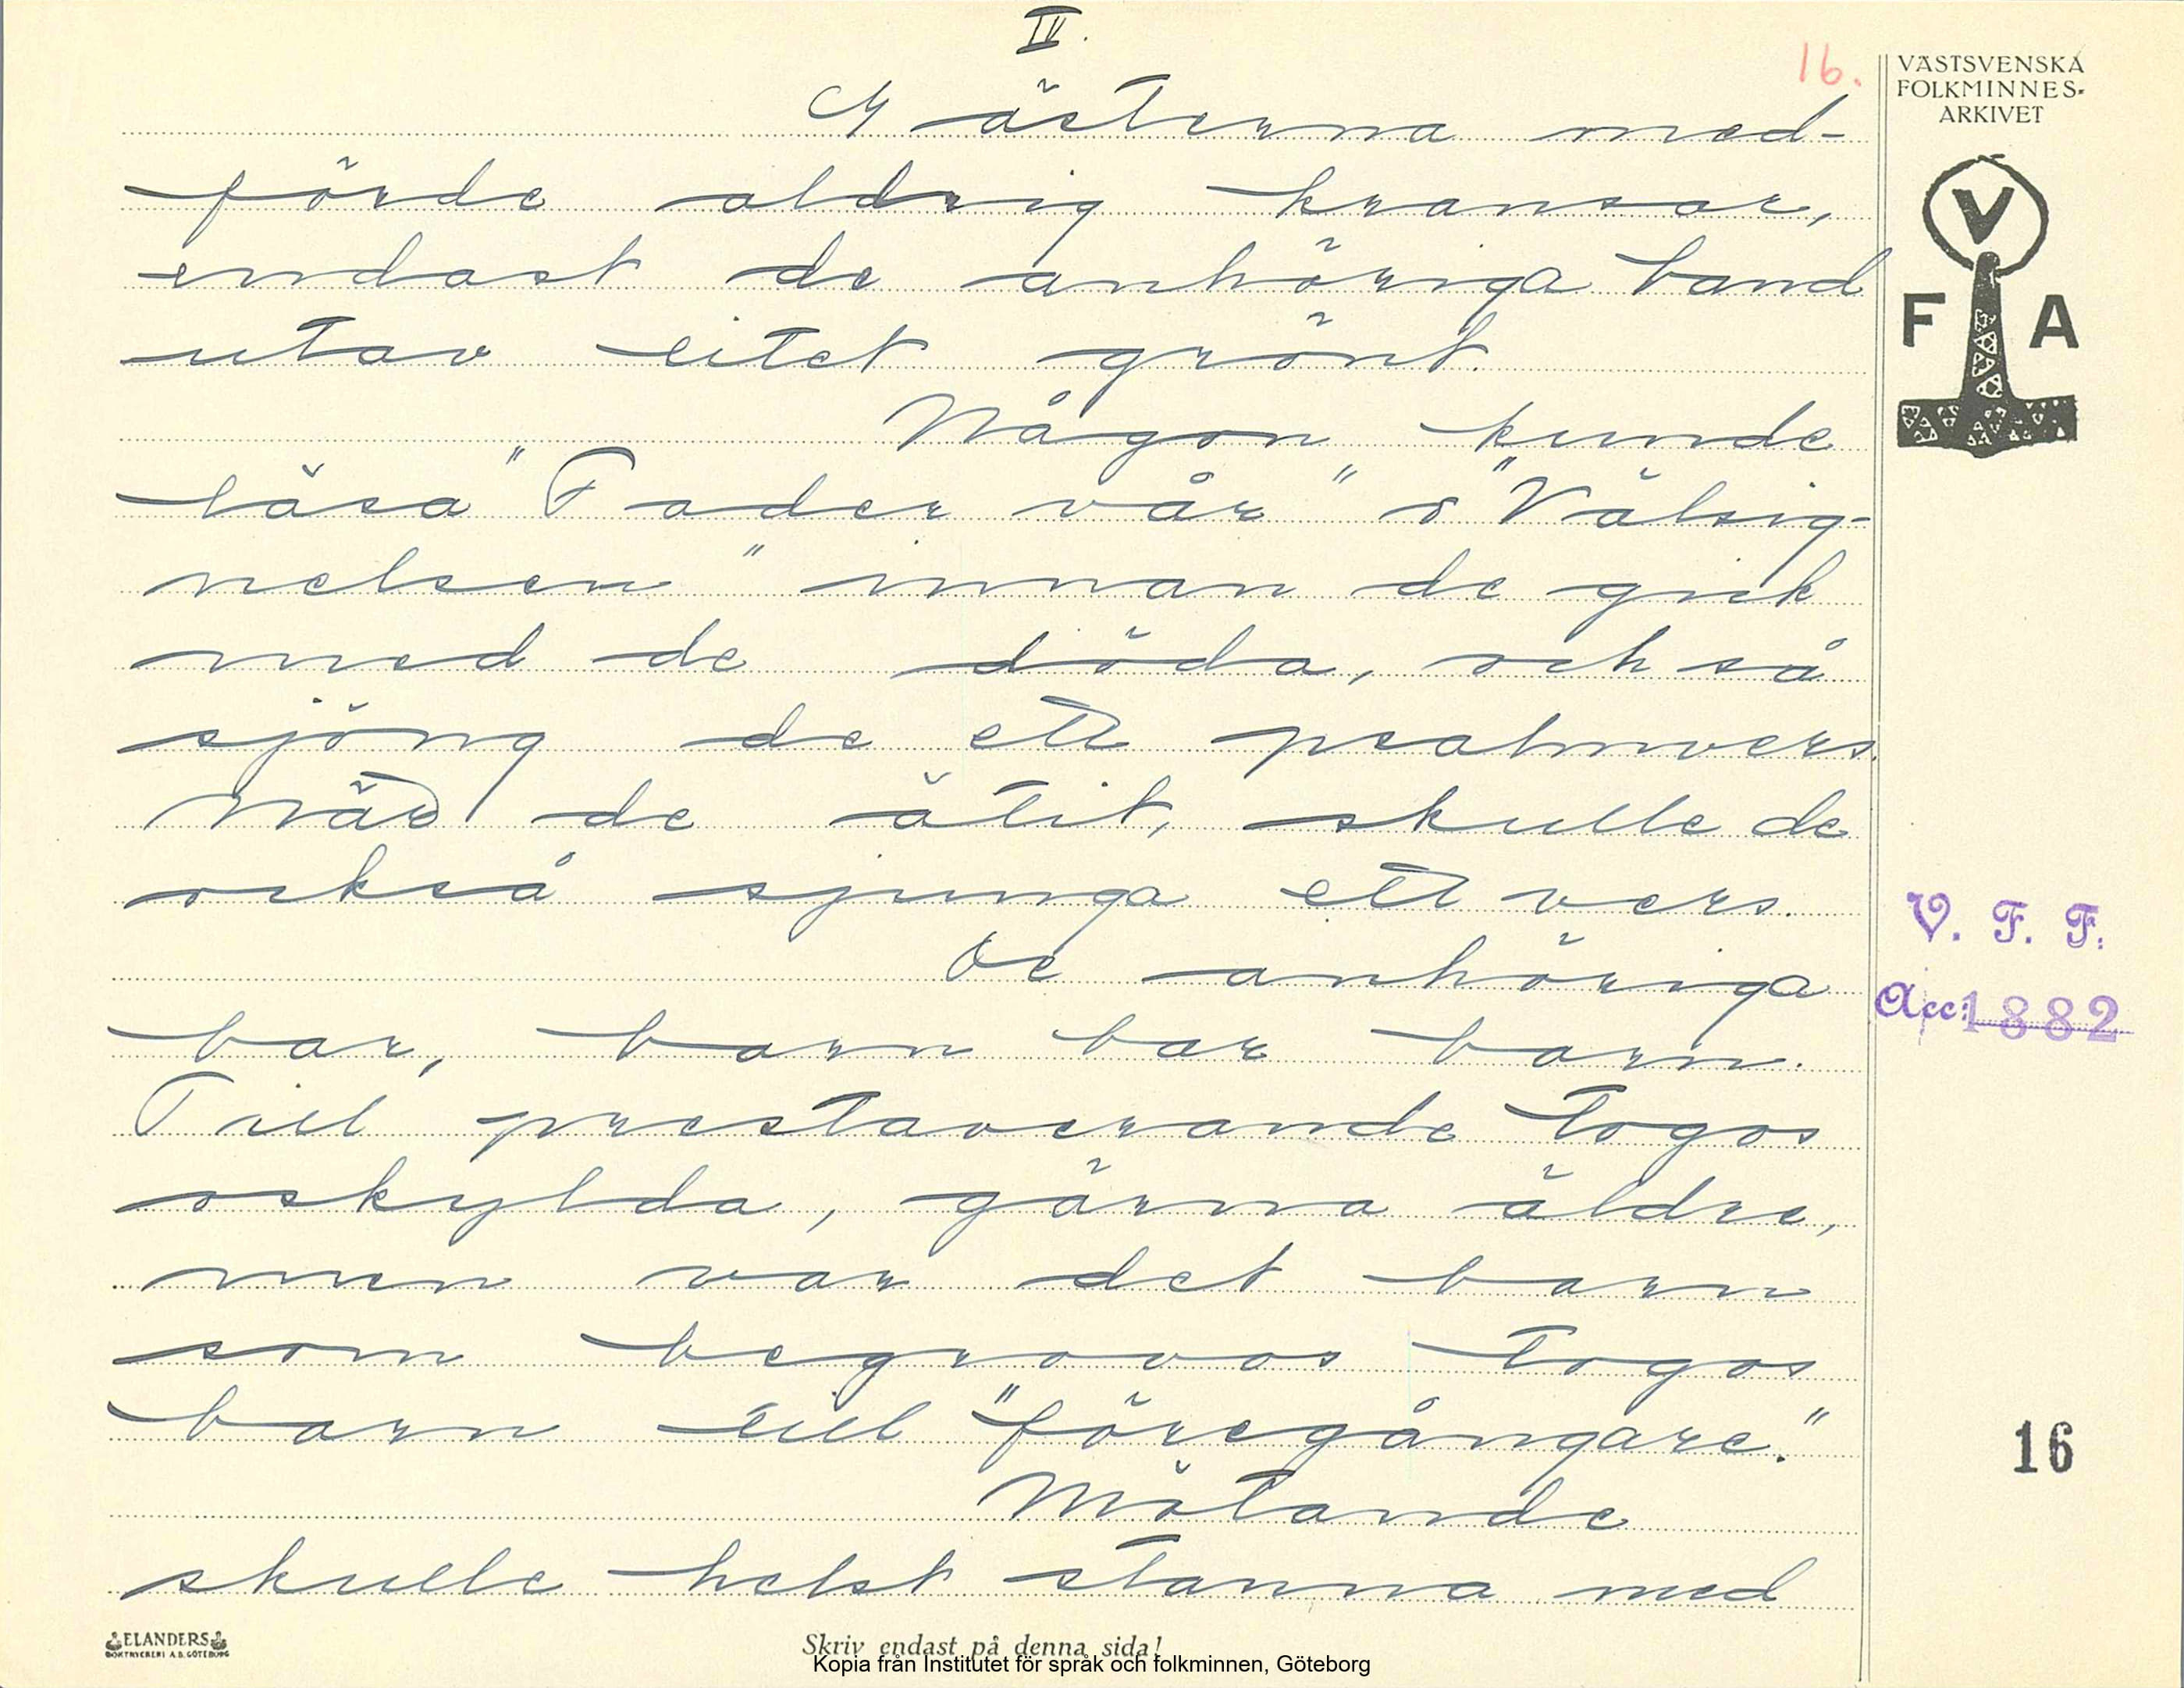 II.
16.
VÄSTSVENSKA
FOLKMINNES-
ARKIVET
V
F A
Gästerna med-
förde aldrig kransar,
endast de anhöriga band
utav litet grönt.
Någon kunde
läsa "Fader vår" o "Välsig-
nelsen" innan de gick
med de döda, och så
sjöng de ett psalmvers.
När de ätit, skulle de
också sjunga ett vers.
De anhöriga
bar, barn bar barn.
Till prestaverande togos
oskylda, gärna äldre,
men var det barn
som begrovos togos
barn till "föregångare."
Mötande
skulle helst stanna med
V. F. F.
Acc: 1882
16
ELANDERS
BOKTRYCKERI A.B. GÖTEBORG
Skriv endast på denna sida!
Kopia från Institutet för språk och folkminnen, Göteborg